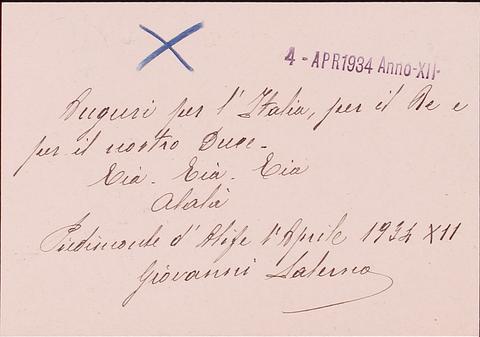 4 - APR 1934 Anno-XII-
Auguri per l'Italia, per il Re e
per il nostro Duce -
Eià - Eià - Eia
Alalà
Piedimonte d'Alife 1' Aprile 1934 XII
Giovanni Salerno